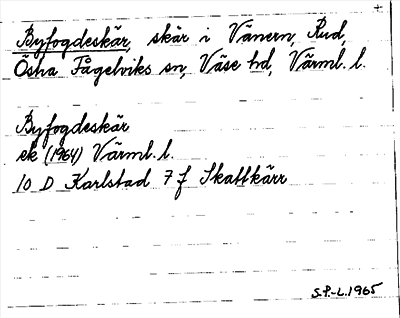 Byfogdeskär, skär i Vänern, Rud,
Östra Fågelviks sn, Väse hd, Värml. l.
Byfogdeskär
ek (1964) Värml. l.
10 D Karlstad 7 f Skattkärr
S.P-L.1965